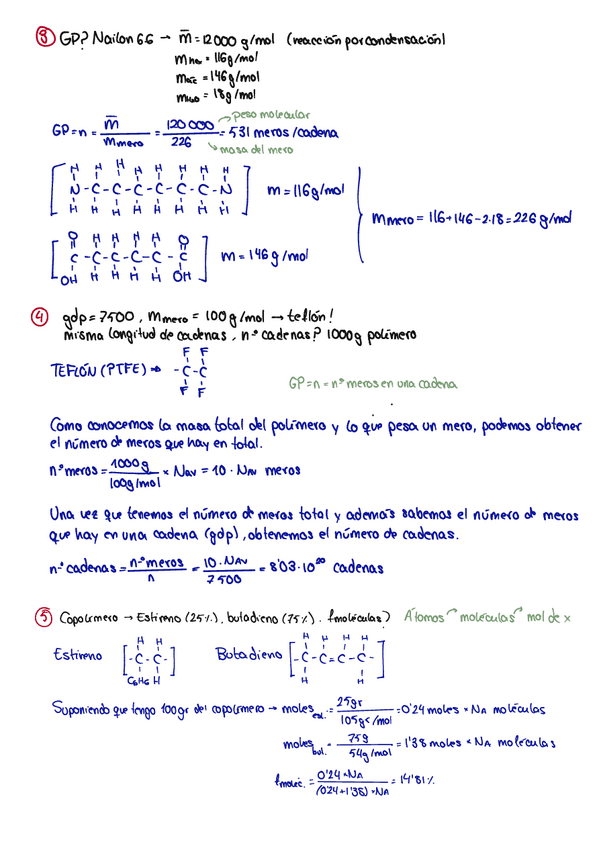 ③ GP? Nailon 6.6 → m̄ = 12000 g/mol (reacción por condensación)
m = 116g/mol
m = 146g/mol
m = 18g/mol
GP = n = m̄ / m mero = 120 000 / 226 = 531 meros/cadena
peso molecular
masa del mero
H H H H H H H H
N - C - C - C - C - C - C - N
H H H H H H H H
m = 116g/mol
m mero = 116 + 146 - 2·18 = 226 g/mol
O H H H H O
C - C - C - C - C - C
OH H H H H OH
m = 146g/mol
④ gdp = 7500, m mero = 100g/mol → teflón!
misma longitud de cadenas, nº cadenas? 1000g polímero
TEFLÓN (PTFE) →
F F
- C - C -
F F
GP = n = nº meros en una cadena
Como conocemos la masa total del polímero y lo que pesa un mero, podemos obtener
el número de meros que hay en total.
nº meros = 1000g / 100g/mol × NAV = 10 · NAV meros
Una vez que tenemos el número de meros total y además sabemos el número de meros
que hay en una cadena (gdp), obtenemos el número de cadenas.
nº cadenas = nº meros / n = 10 · NAV / 7500 = 8'03·10²⁰ cadenas
⑤ Copolímero → Estireno (25%), butadieno (75%). fmoléculas? Átomos moléculas mol de x
Estireno
H H
- C - C -
C6H6 H
Butadieno
H H H H
- C - C = C - C -
H H
Suponiendo que tengo 100gr del copolímero → moles est. = 25gr / 105gr/mol = 0'24 moles × NA moléculas
moles but. = 75g / 54g/mol = 1'38 moles × NA moléculas
fmoléc. = 0'24 × NA / (0'24 + 1'38) × NA = 14'81%